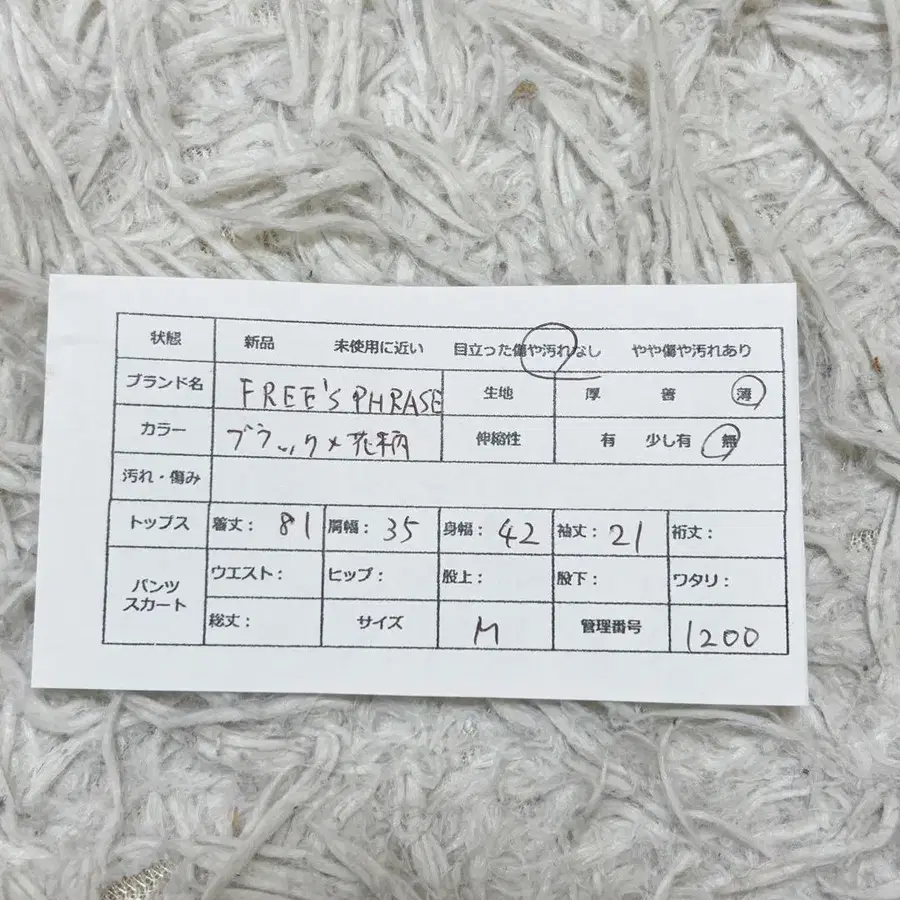 状態 新品 未使用に近い 目立った傷や汚れなし やや傷や汚れあり
ブランド名 FREE'S PHRASE 生地 厚 善 薄
カラー ブラック×花柄 伸縮性 有 少し有 無
汚れ・傷み
トップス 着丈: 81 肩幅: 35 身幅: 42 袖丈: 21 裄丈:
パンツ スカート ウエスト: ヒップ: 股上: 股下: ワタリ:
総丈: サイズ M 管理番号 1200